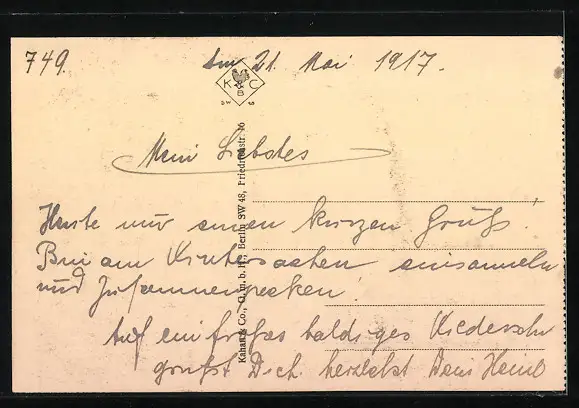 749.
Am 21. Mai 1917.
K C
B
Mein Liebstes
Heute nur einen kurzen Gruß!
Bin am Wintersachen einsammeln
und Zusammenpacken!
Auf ein frohes baldiges Wiedersehn
grüßt Dich herzlichst Dein Heinl
Kahan & Co., G.m.b.H., Berlin SW 48, Friedrichstr. 16